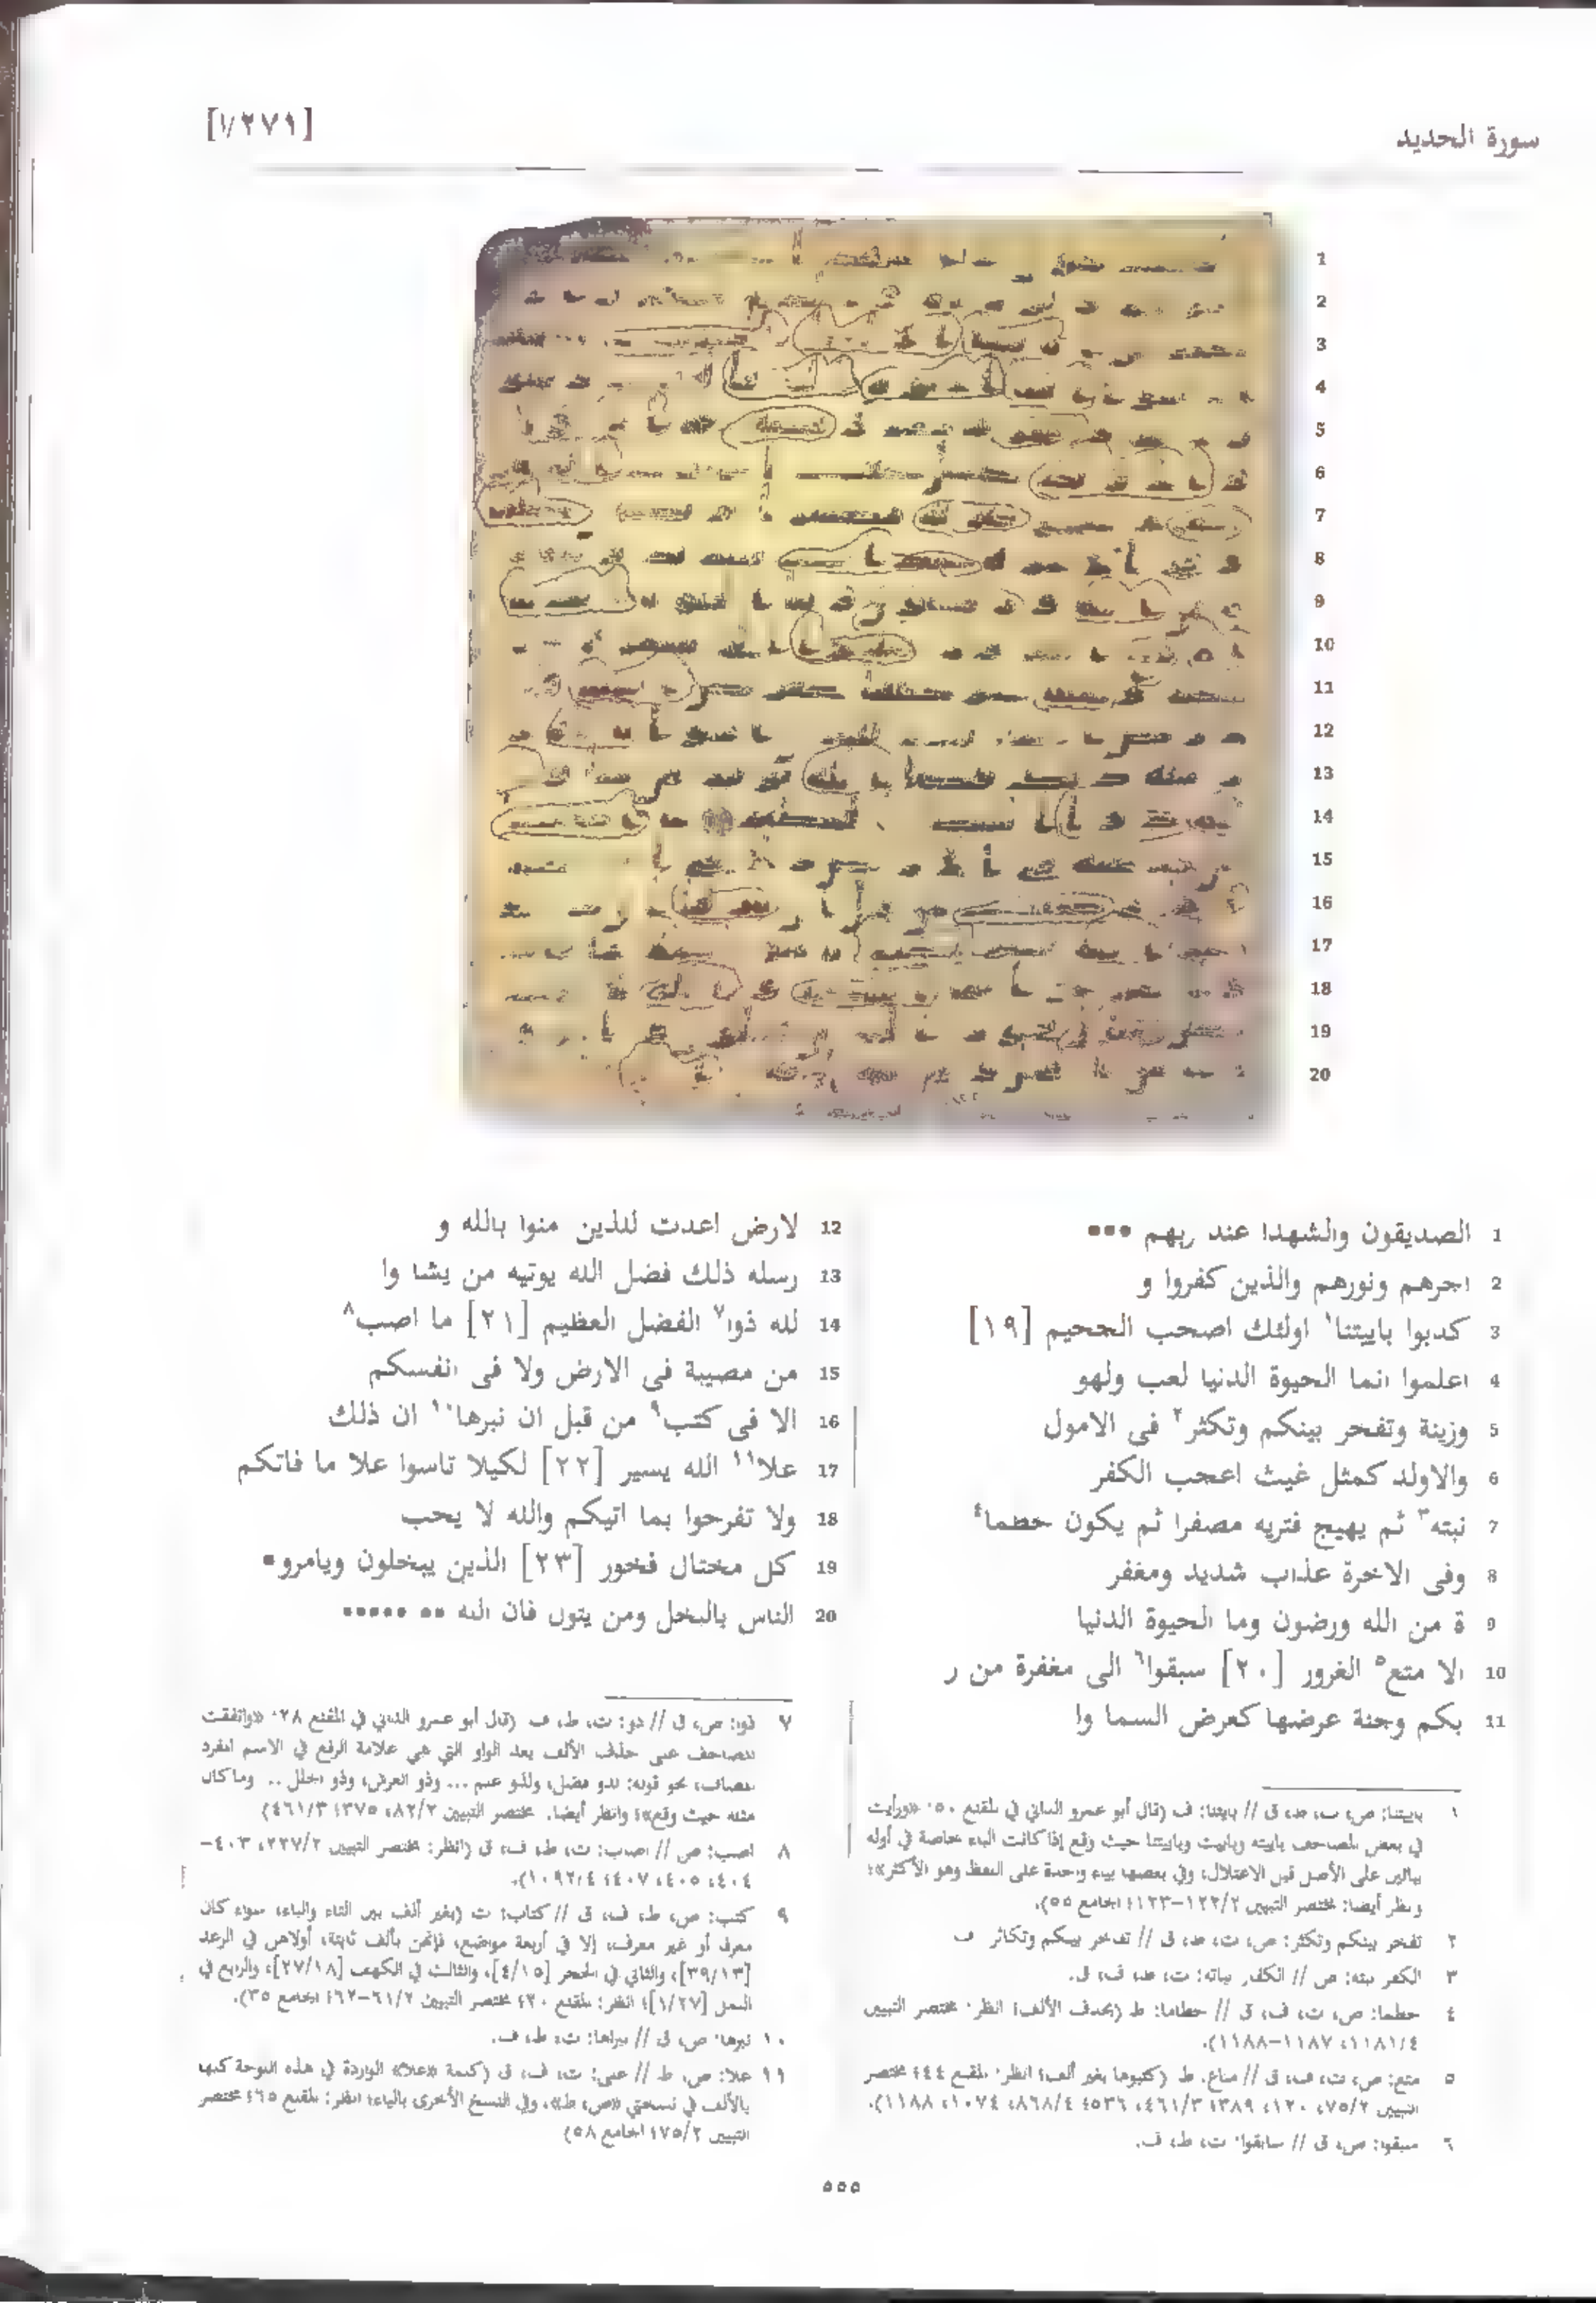 سورة الحديد
[٢٧١/١]
1
2
3
4
5
6
7
8
9
10
11
12
13
14
15
16
17
18
19
20
1 الصديقون والشهدا عند ربهم •••
2 اجرهم ونورهم والذين كفروا و
3 كدبوا باييتنا١ اولئك اصحب الجحيم [١٩]
4 اعلموا انما الحيوة الدنيا لعب ولهو
5 وزينة وتفخر بينكم وتكثر٢ فى الامول
6 والاولد كمثل غيث اعجب الكفر
7 نبته٣ ثم يهيج فتريه مصفرا ثم يكون حطما٤
8 وفى الاخرة عذاب شديد ومغفر
9 ة من الله ورضون وما الحيوة الدنيا
10 الا متع٥ الغرور [٢٠] سبقوا٦ الى مغفرة من ر
11 بكم وجنة عرضها كعرض السما وا
12 لارض اعدت للذين منوا بالله و
13 رسله ذلك فضل الله يوتيه من يشا وا
14 لله ذوا٧ الفضل العظيم [٢١] ما اصب٨
15 من مصيبة فى الارض ولا فى انفسكم
16 الا فى كتب٩ من قبل ان نبرها١٠ ان ذلك
17 علا١١ الله يسير [٢٢] لكيلا تاسوا علا ما فاتكم
18 ولا تفرحوا بما اتيكم والله لا يحب
19 كل مختال فخور [٢٣] الذين يبخلون ويامرو•
20 الناس بالبخل ومن يتول فان الله •• •••••
١ باييتنا: ص، ت، ط، ق // بايتنا: ف (قال أبو عمرو الداني في المقنع ٥٠: «ورأيت
في بعض المصاحف باييته وباييت وباييتنا حيث وقع إذا كانت الباء خاصة في أوله
بيائين على الأصل قبل الاعتلال، وفي بعضها بياء واحدة على اللفظ وهو الأكثر»؛
وانظر أيضا: مختصر التبيين ١٢٢/٢-١٢٣؛ الجامع ٥٥).
٢ تفخر بينكم وتكثر: ص، ت، ط، ق // تفاخر بينكم وتكاثر: ف
٣ الكفر نبته: ص // الكفار نباته: ت، ط، ف، ق.
٤ حطما: ص، ت، ف، ق // حطاما: ط (بحذف الألف؛ انظر: مختصر التبيين
١١٨١/٤، ١١٨٧-١١٨٨).
٥ متع: ص، ت، ف، ق // متاع: ط (كتبوها بغير ألف؛ انظر: المقنع ٤٤؛ مختصر
التبيين ٧٥/٢، ١٢٠، ٣٨٩؛ ٤٦١/٣، ٥٣٦؛ ٨٦٨/٤، ١٠٧٤، ١١٨٨).
٦ سبقوا: ص، ق // سابقوا: ت، ط، ف.
٧ ذوا: ص، ق // ذو: ت، ط، ف (قال أبو عمرو الداني في المقنع ٢٨: «واتفقت
المصاحف على حذف الألف بعد الواو التي هي علامة الرفع في الاسم المفرد
المضاف، نحو قوله: لذو فضل، ولذو علم ... وذو العرش، وذو الجلل .. وما كان
مثله حيث وقع»؛ وانظر أيضا: مختصر التبيين ٨٢/٢، ٣٧٥؛ ٤٦١/٣)
٨ اصب: ص // اصاب: ت، ط، ف، ق (انظر: مختصر التبيين ٢٢٧/٢، ٤٠٣-
٤٠٤، ٤٠٥، ٤٠٧؛ ١٠٩٢/٤).
٩ كتب: ص، ط، ف، ق // كتاب: ت (بغير ألف بين التاء والباء، سواء كان
معرف أو غير معرف، إلا في أربعة مواضع، فإنهن بألف ثابتة، أولاهن في الرعد
[٣٩/١٣]، والثاني في الحجر [٤/١٥]، والثالث في الكهف [٢٧/١٨]، والرابع في
النمل [١/٢٧]؛ انظر: المقنع ٢٠؛ مختصر التبيين ٦١/٢-٦٢؛ الجامع ٣٥).
١٠ نبرها: ص، ق // نبراها: ت، ط، ف.
١١ علا: ص، ط // على: ت، ف، ق (كلمة «علا» الواردة في هذه اللوحة كتبها
بالألف في نسختي «ص، ط»، وفي النسخ الأخرى بالياء؛ انظر: المقنع ٦٥؛ مختصر
التبيين ٧٥/٢؛ الجامع ٥٨)
٥٥٥